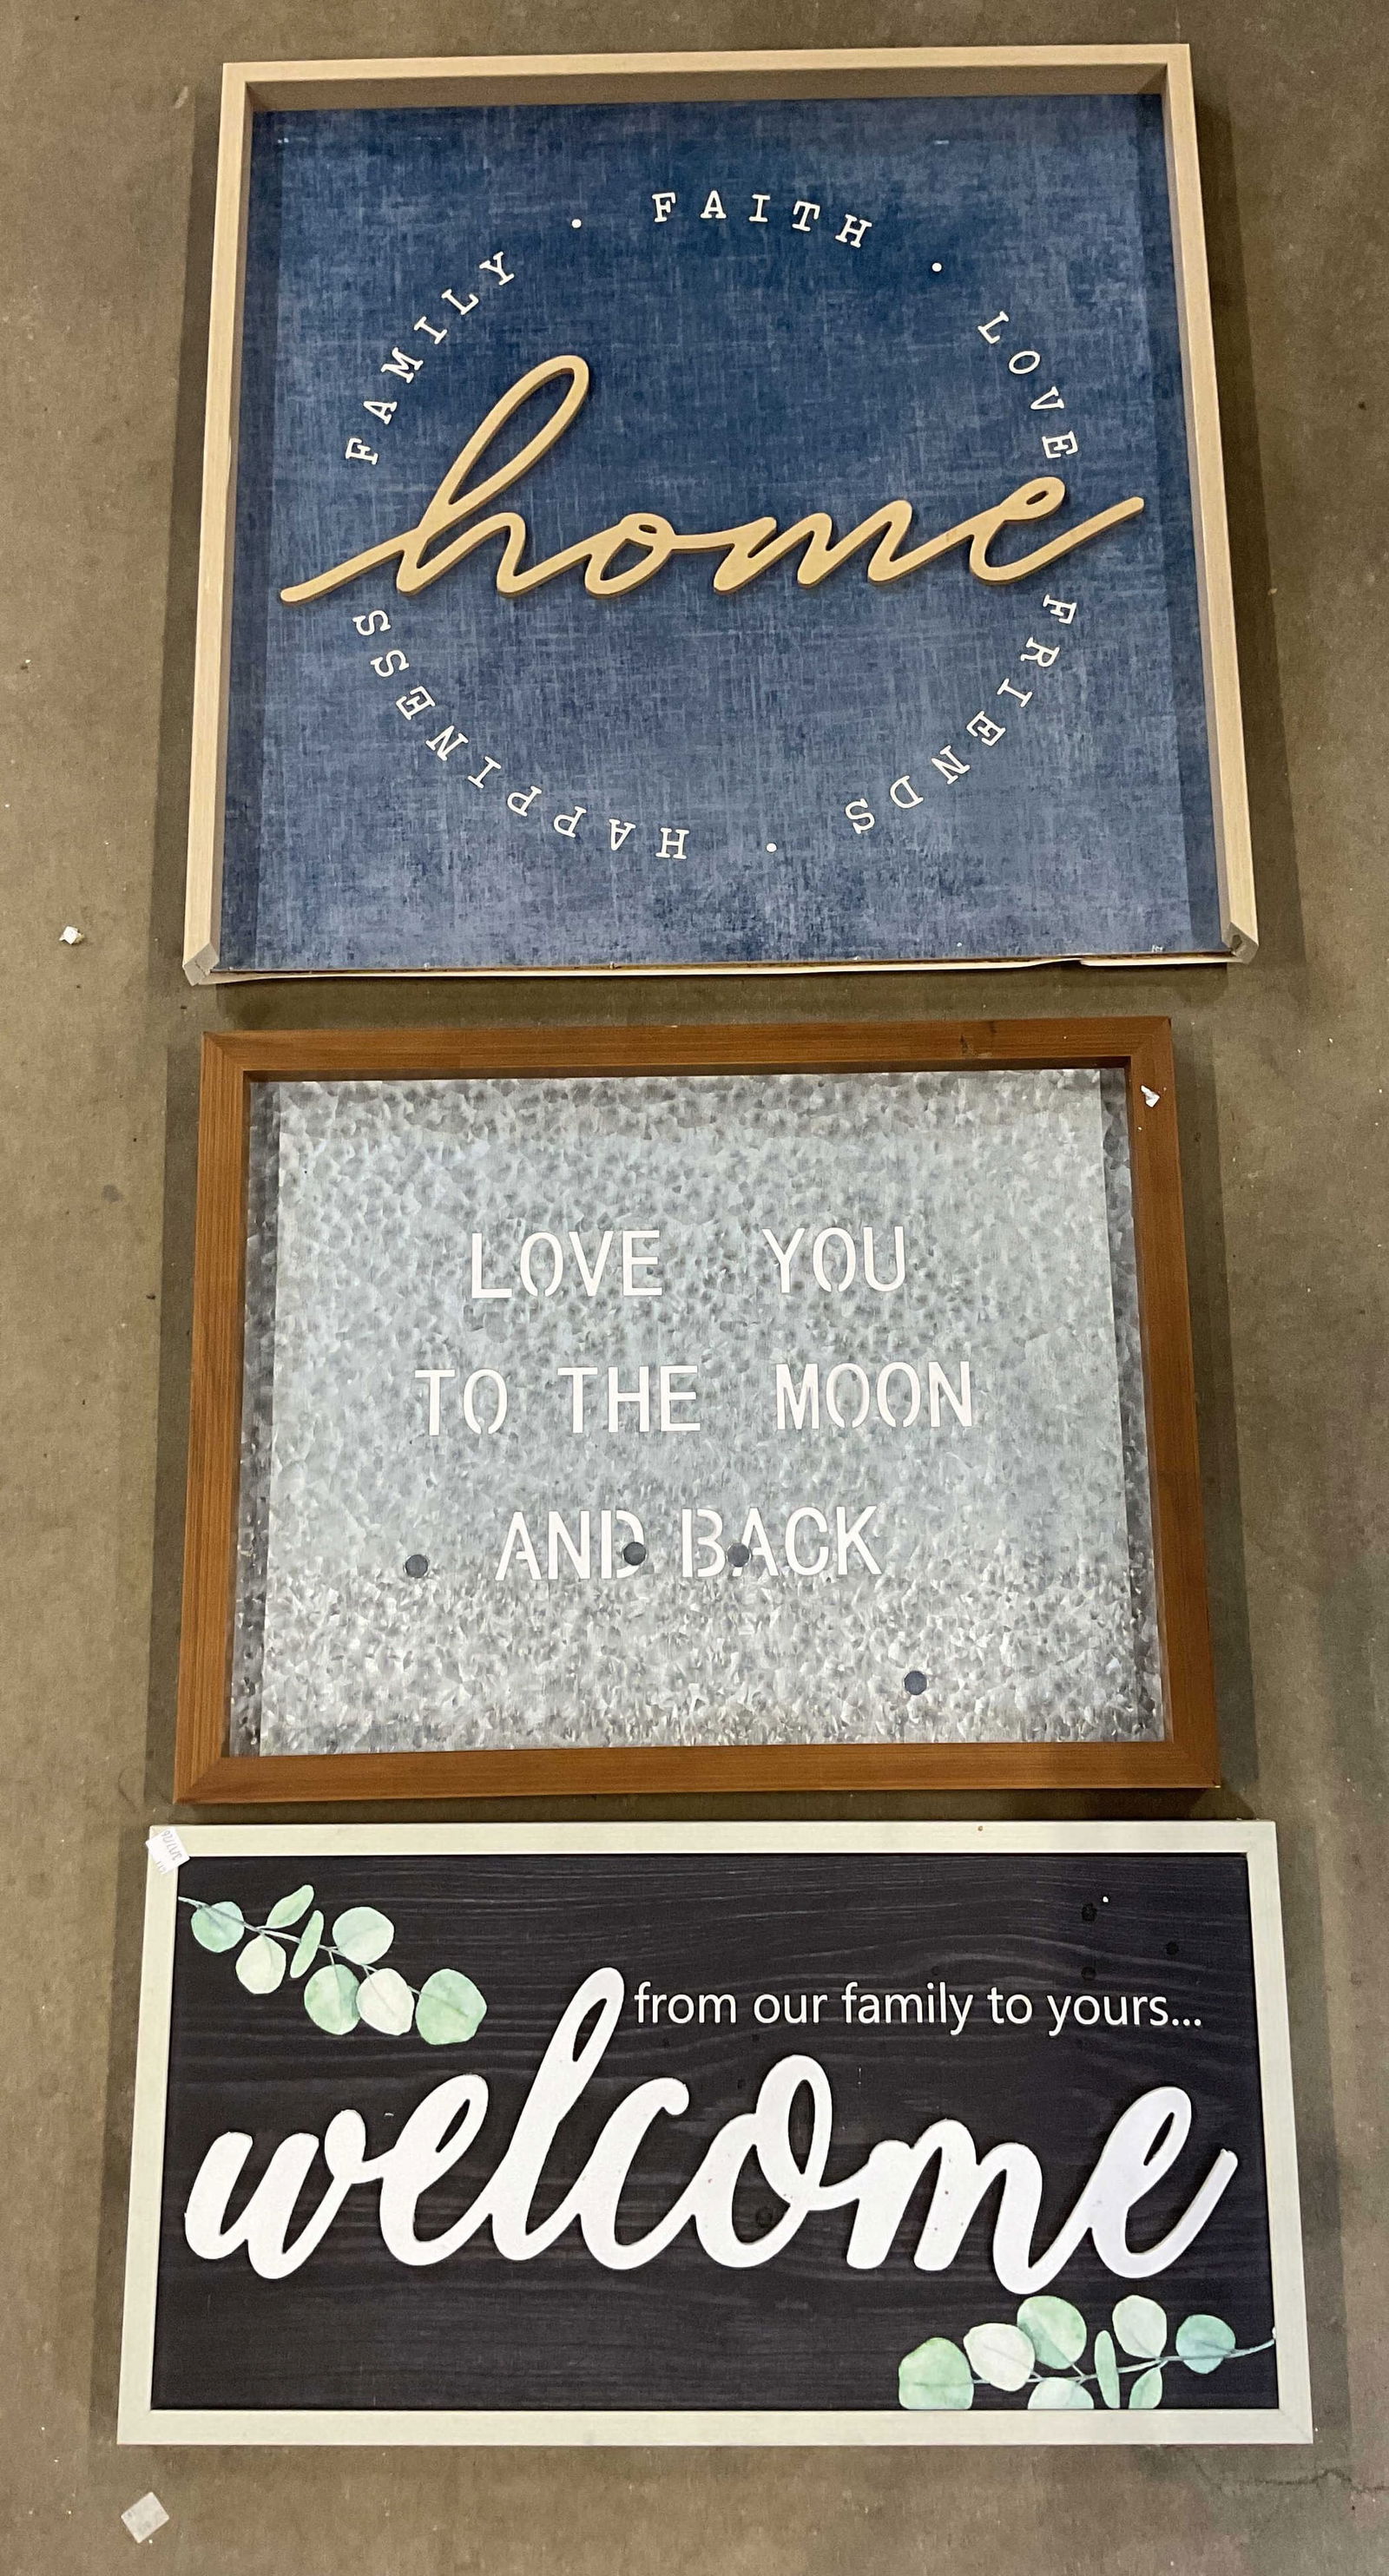 FAMILY • FAITH • LOVE
home
FRIENDS • HAPPINESS
LOVE YOU
TO THE MOON
AND BACK
from our family to yours...
welcome